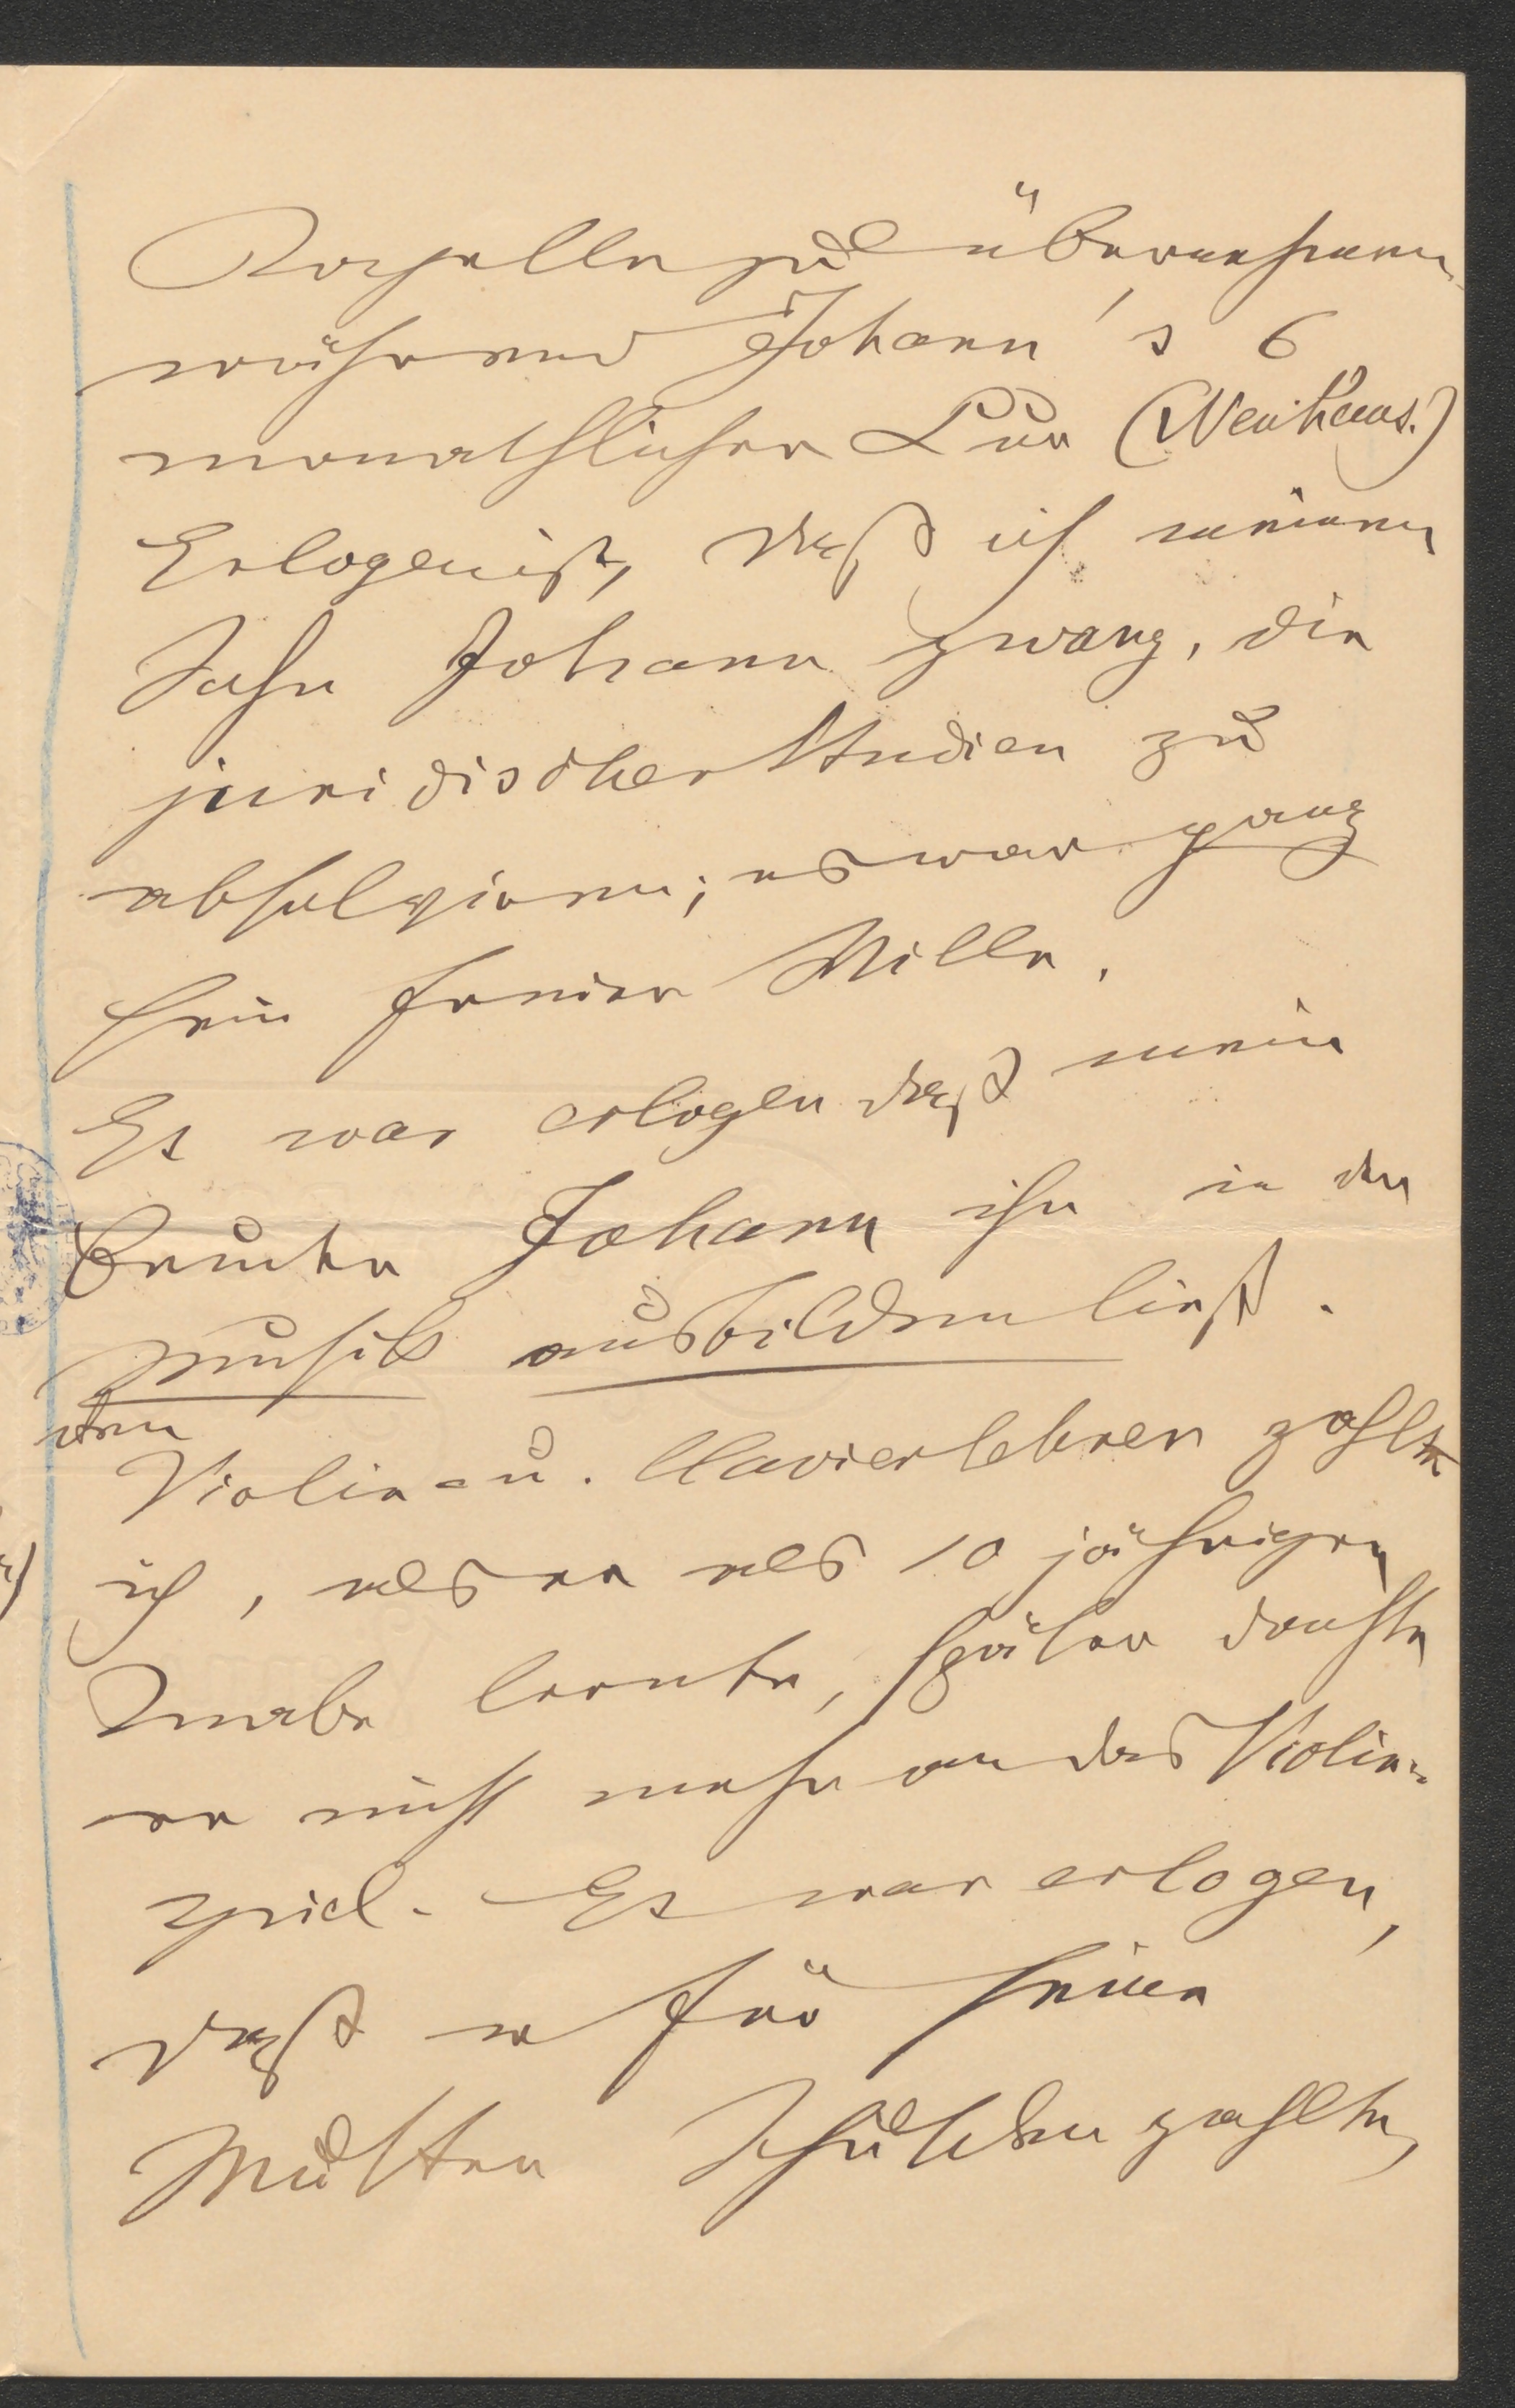 Kapelle zu übernehmen
während Johann's 6
monathlicher Cur (Neuhaus.)
Erlogen ist, daß ich meinen
Sohn Johann zwang, die
juridischen Studien zu
absolvieren; es war ganz
sein freier Wille.
Es war erlogen daß mein
Bruder Johann ihn in der
Musik ausbilden ließ.
dem
Violin- u. Clavierlehrer zahlte
ich, als er als 10 jähriger
Knabe lernte, später dachte
er nicht mehr an das Violin-
spiel. Es war erlogen,
daß er für seine
Mutter Schulden zahlte,